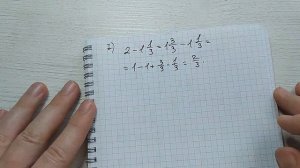 7) 2 - 1 1/3 = 1 3/3 - 1 1/3 =
= 1 - 1 + 3/3 - 1/3 = 2/3